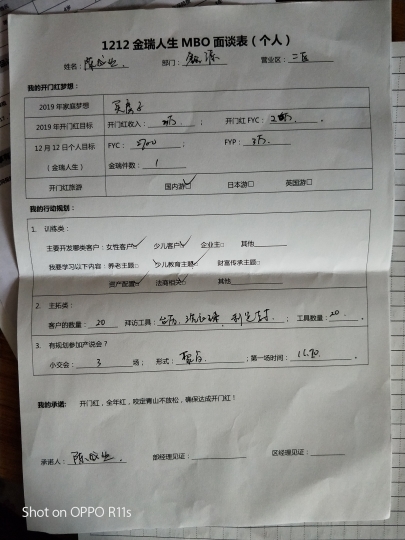 1212金瑞人生MBO面谈表（个人）
姓名： 部门： 营业区：二区
我的开门红梦想：
2019年家庭梦想 买房子
2019年开门红目标 开门红收入： ； 开门红FYC： 。
12月12日个人目标 FYC： ； FYP：
（金瑞人生） 金瑞件数：1
开门红旅游 国内游□ 日本游□ 英国游□
我的行动规划：
1. 训练类：
主要开发哪类客户：女性客户□ 少儿客户□ 企业主□ 其他
我要学习以下内容：养老主题□ 少儿教育主题□ 财富传承主题□
资产配置□ 法商相关□ 其他
2. 主拓类：
客户的数量：20 拜访工具：台历、 ； 工具数量：20。
3. 有规划参加产说会？
小交会：3 场； 形式： ；第一场时间： 。
我的承诺： 开门红，全年红，咬定青山不放松，确保达成开门红！
承诺人： 部经理见证： 区经理见证：
Shot on OPPO R11s